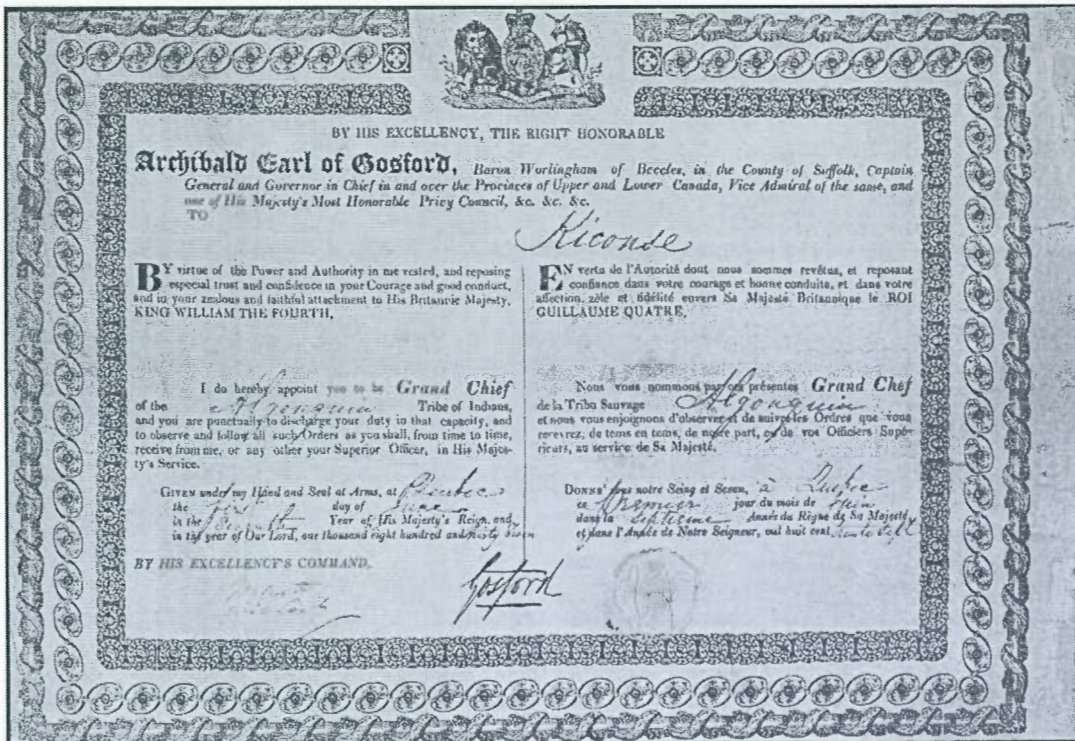 BY HIS EXCELLENCY, THE RIGHT HONORABLE
Archibald Earl of Gosford, Baron Worlingham of Beccles, in the County of Suffolk, Captain
General and Governor in Chief in and over the Provinces of Upper and Lower Canada, Vice Admiral of the same, and
one of His Majesty's Most Honorable Privy Council, &c. &c. &c.
TO
Kiconse
BY virtue of the Power and Authority in me vested, and reposing
especial trust and confidence in your Courage and good conduct,
and in your zealous and faithful attachment to His Britannic Majesty,
KING WILLIAM THE FOURTH,
I do hereby appoint you to be Grand Chief
of the Algonquin Tribe of Indians,
and you are punctually to discharge your duty in that capacity, and
to observe and follow all such Orders as you shall, from time to time,
receive from me, or any other your Superior Officer, in His Majes-
ty's Service.
GIVEN under my Hand and Seal at Arms, at Quebec
the first day of June
in the Seventh Year of His Majesty's Reign, and
in the year of Our Lord, one thousand eight hundred and thirty seven
BY HIS EXCELLENCY'S COMMAND,
EN vertu de l'Autorité dont nous sommes revêtus, et reposant
confiance dans votre courage et bonne conduite, et dans votre
affection, zèle et fidélité envers Sa Majesté Britannique le ROI
GUILLAUME QUATRE,
Nous vous nommons par ces présentes Grand Chef
de la Tribu Sauvage Algonquin
et nous vous enjoignons d'observer et de suivre les Ordres que vous
recevrez, de tems en tems, de notre part, ou de vos Officiers Supé-
rieurs, au service de Sa Majesté.
DONNÉ sous notre Seing et Sceau, à Quebec
ce Premier jour du mois de Juin
dans la septieme Année du Règne de Sa Majesté,
et dans l'Année de Notre Seigneur, mil huit cent trente sept
Gosford